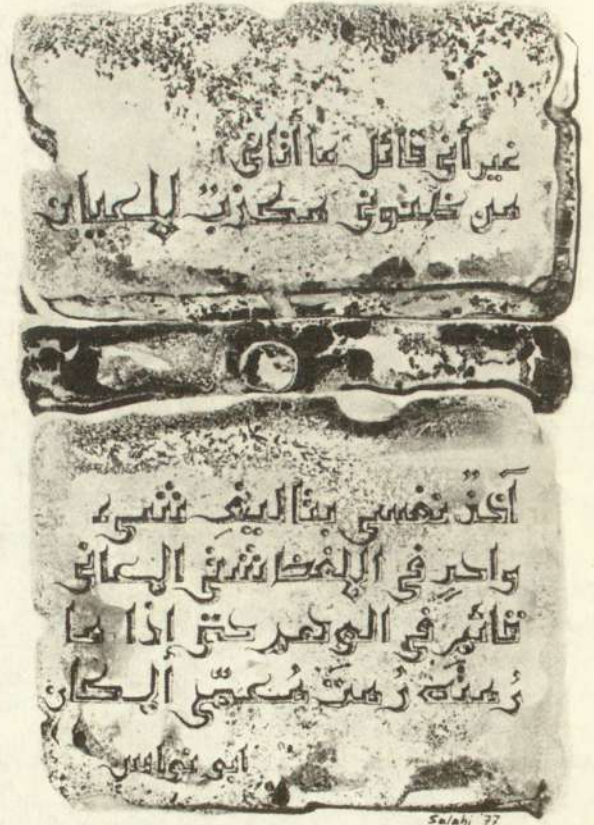 غير أني قائل ما أتاني
من ظنوني مكذبٌ للعيان
آخذٌ نفسي بتاليفِ شيء
واحد في اللفظ شتى المعاني
قائمٍ في الوهم حتى إذا ما
رُمتَه رُمتَ مُعمّى المكان
ابي نواس
Salahi '77